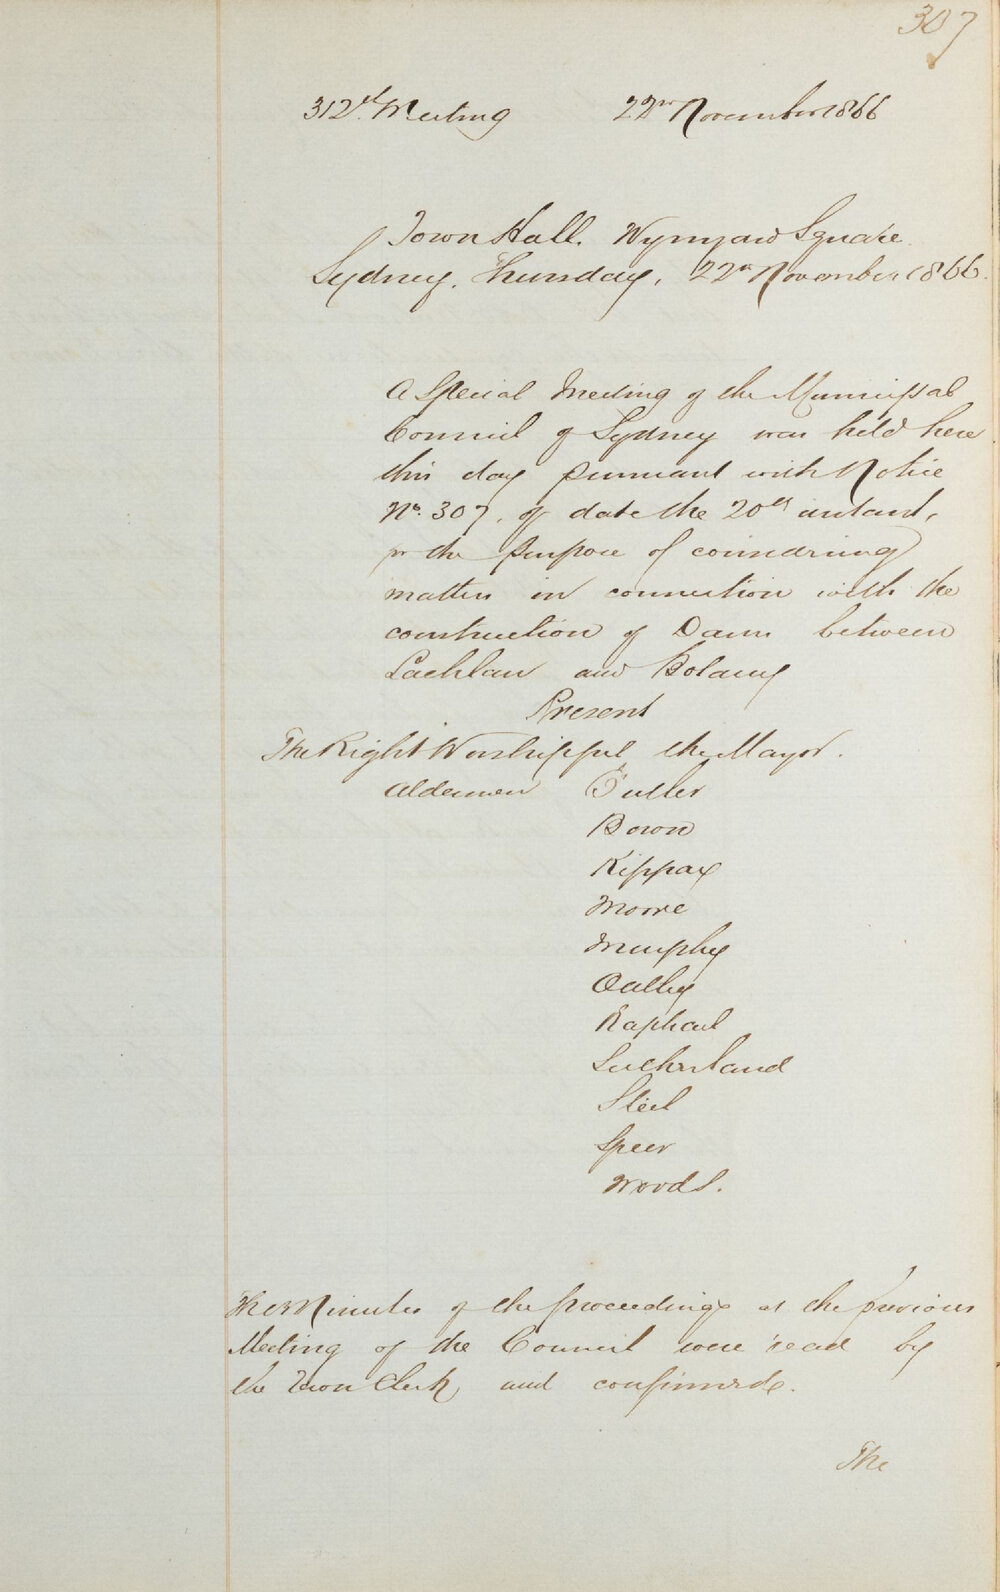 307
312th Meeting 22nd November 1866
Town Hall. Wynyard Square
Sydney. Thursday, 22nd November 1866.
A Special Meeting of the Municipal
Council of Sydney was held here
this day pursuant with Notice
No. 307, of date the 20th instant,
for the purpose of considering
matters in connection with the
construction of Dams between
Lachlan and Botany
Present
The Right Worshipful the Mayor.
Aldermen Butler
Bown
Kippax
Moore
Murphy
Oatley
Raphael
Sutherland
Steel
Speer
Woods.
The Minutes of the proceedings at the previous
Meeting of the Council were read by
the Town Clerk, and confirmed.
The